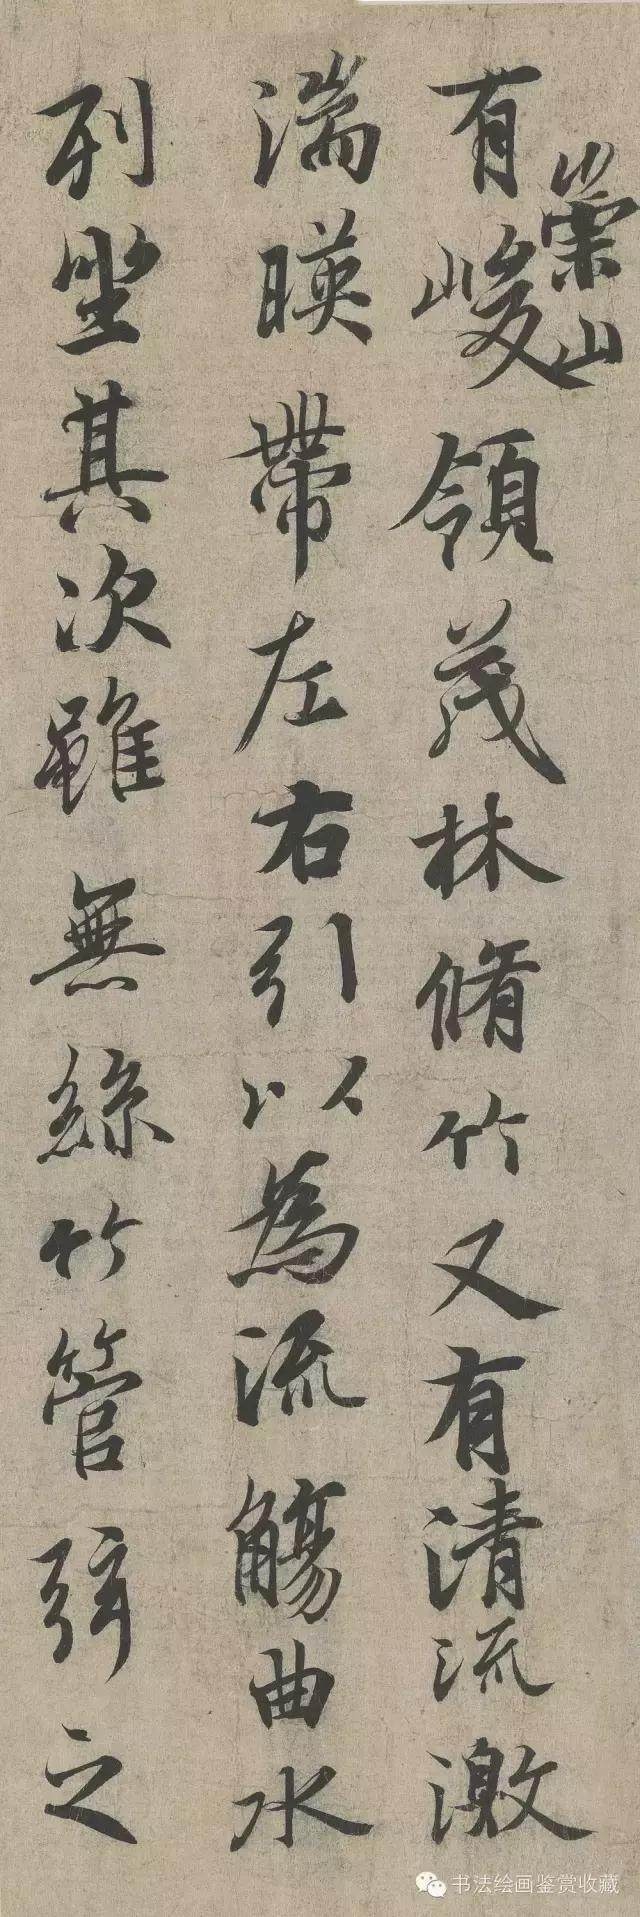 崇山
有峻領茂林脩竹又有清流激
湍暎帶左右引以為流觴曲水
列坐其次雖無絲竹管弦之
书法绘画鉴赏收藏